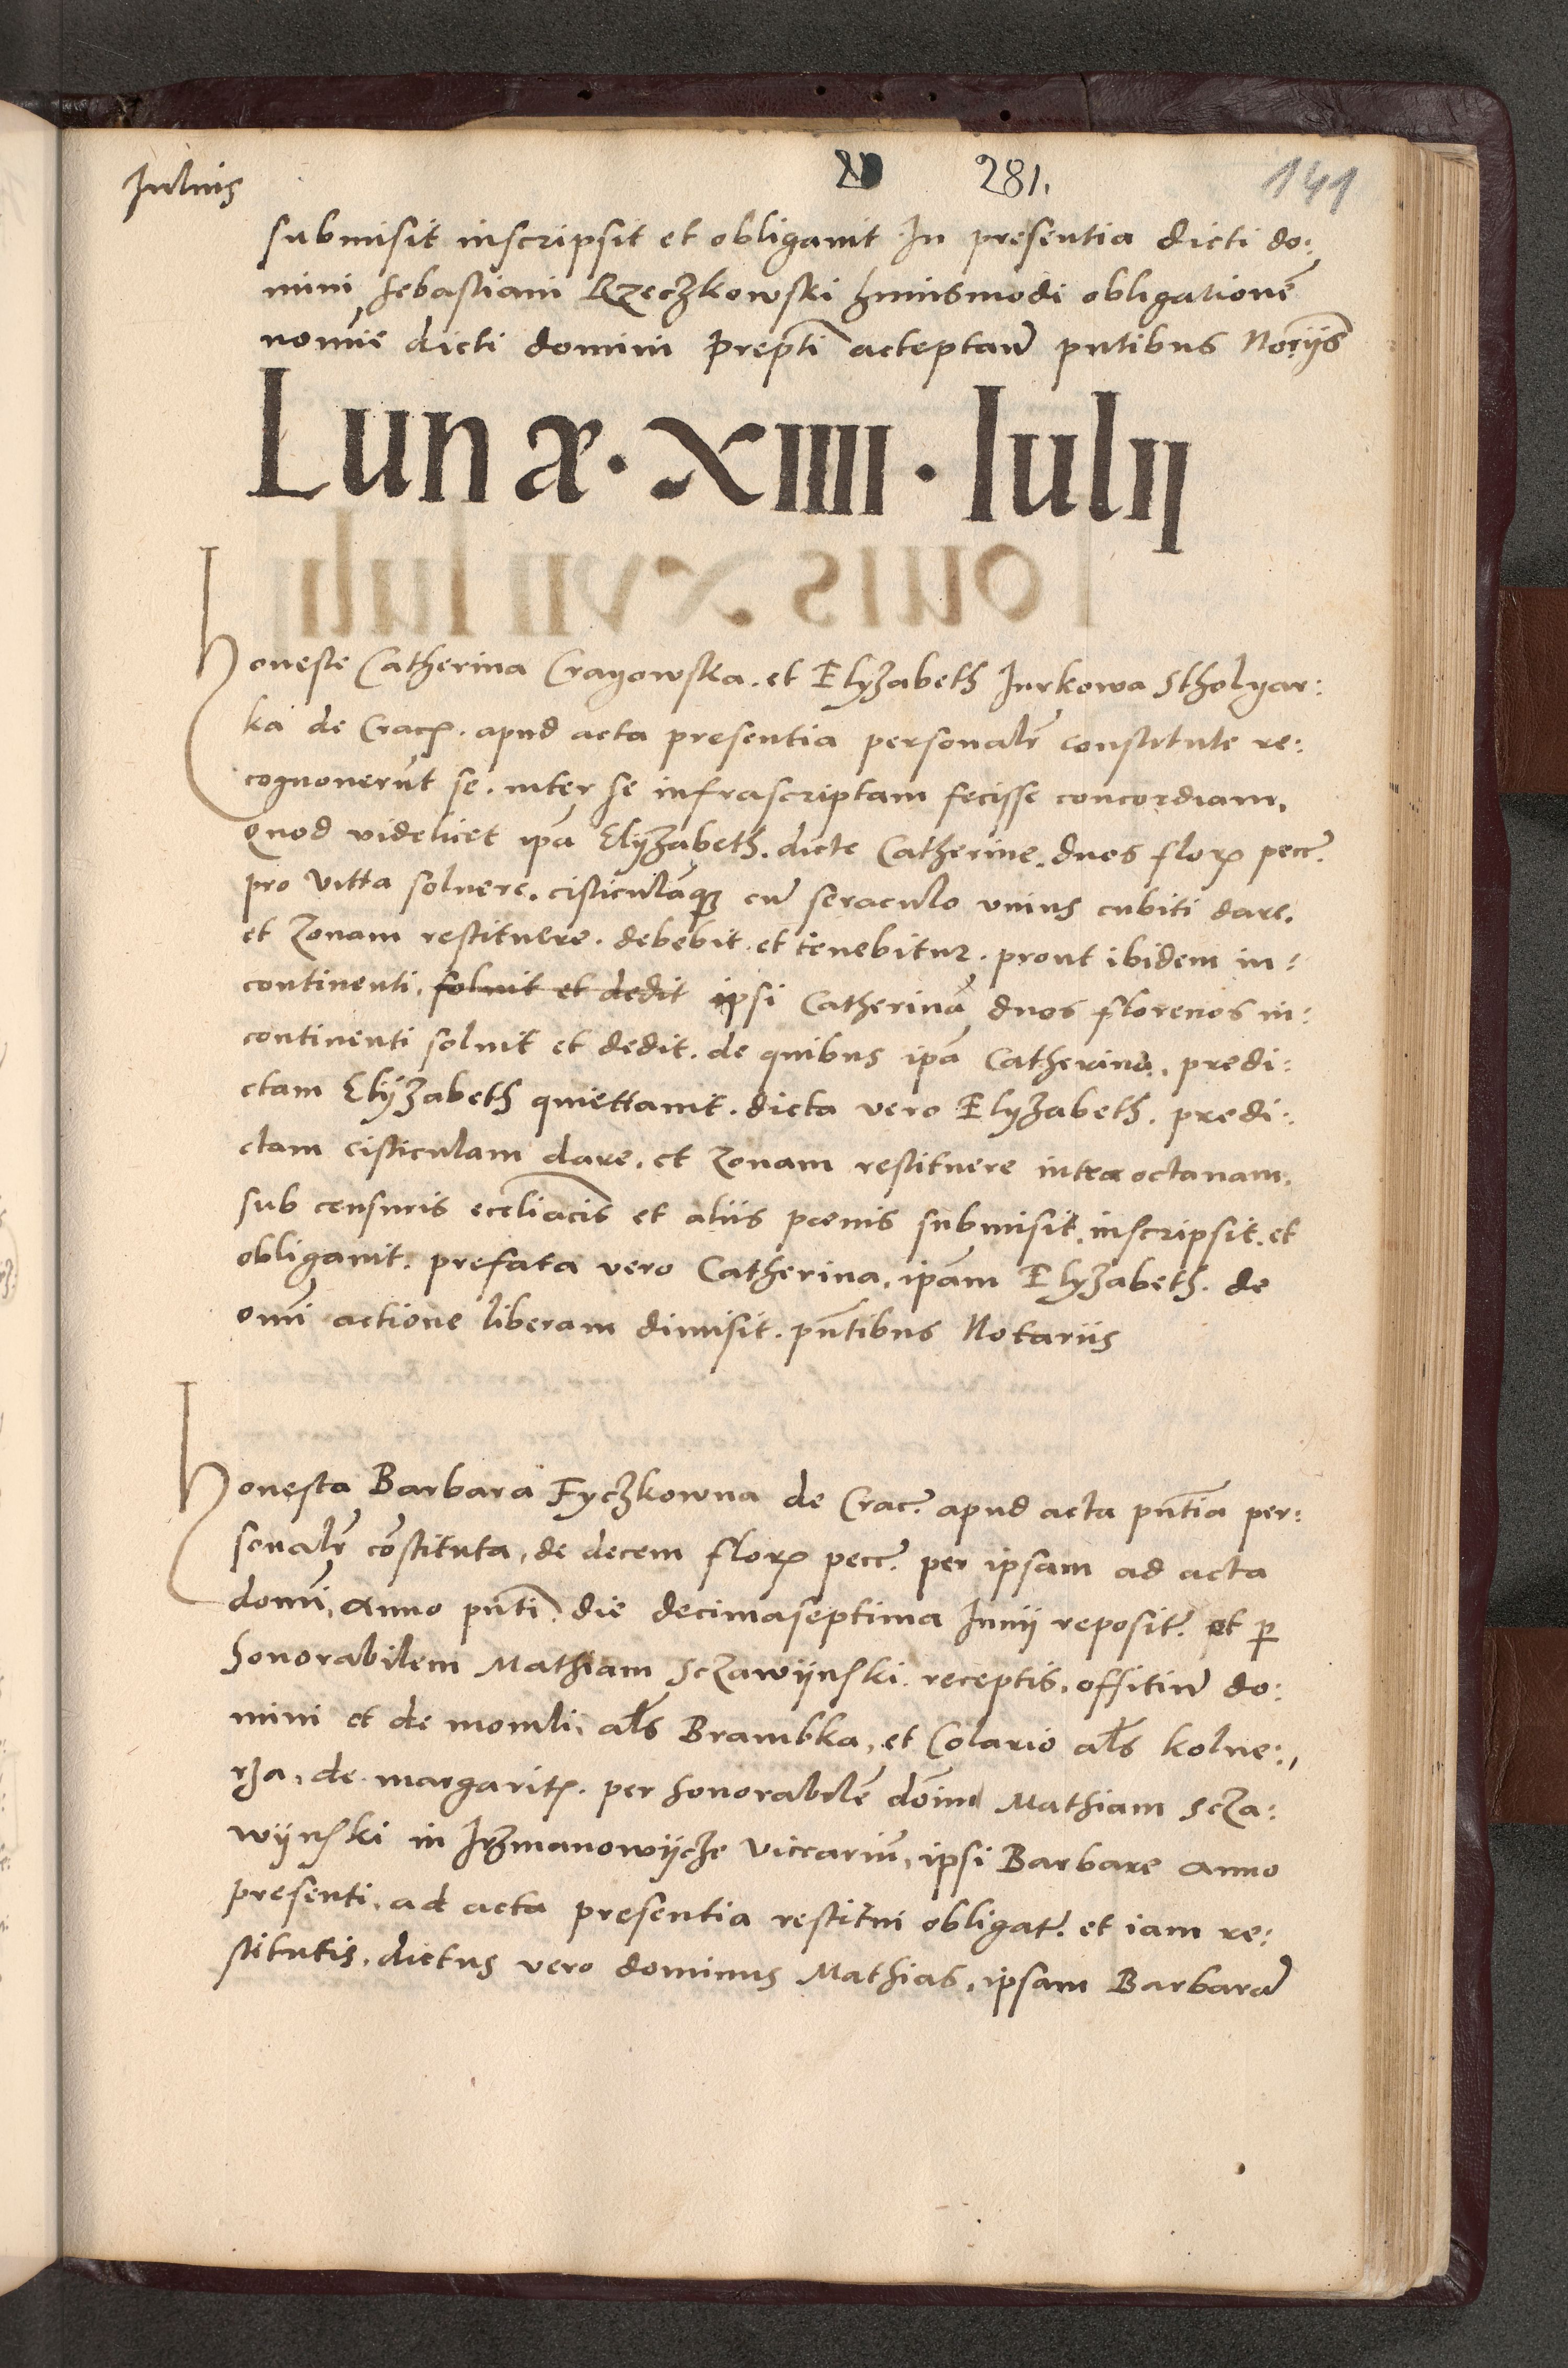 Iulius
281.
141
submisit inscripsit et obligauit In presentia dicti do:
mini Sebastiani Rzeczkowski huiusmodi obligationẽ
nomĩe dicti domini Prepti acteptañ pñtibus Noriis
Lunæ · XIIII · Iulij
Honeste Catherina Crayowska. et Elyzabeth Jurkowa Stholyar:
ka de Crac. apud acta presentia personalr constitute re:
cognouerũt se. inter se infrascriptam fecisse concordiam.
Quod videlicet ipã Elyzabeth. dicte Catherine. duos flor pecc.
pro vitta soluere. cisticulãque cũ seraculo vnius cubiti dare.
et Zonam restituere. debebit. et tenebitur. prout ibidem in:
continenti. soluit et dedit ipsi Catherinã duos florenos in:
continenti soluit et dedit. de quibus ipã Catherina. predi:
ctam Elyzabeth quiettauit. dicta vero Elyzabeth. predi:
ctam cisticulam dare. et Zonam restituere intra octauam.
sub censuris eccliacis et aliis poenis submisit. inscripsit. et
obligauit. prefata vero Catherina. ipam Elyzabeth. de
omi actione liberam dimisit. pñtibus Notariis
Honesta Barbara Fyczkowna de Crac. apud acta pñtia per:
sonalr cõstituta, de decem flor pecc. per ipsam ad acta
domi, anno pñti. die decimaseptima Iunij reposit. et p
honorabilem Mathiam Sczawijnski receptis. offitiũ do:
mini et de monili, als Brambka, et Colario als kolne:,
rza, de margarit. per honorabilẽ domĩ Mathiam Scza:
wijnski in Irzmanowijcze viccariũ, ipsi Barbare anno
presenti, ad acta presentia restitui obligat. et iam re:
stitutis. dictus vero dominus Mathias, ipsam Barbarã